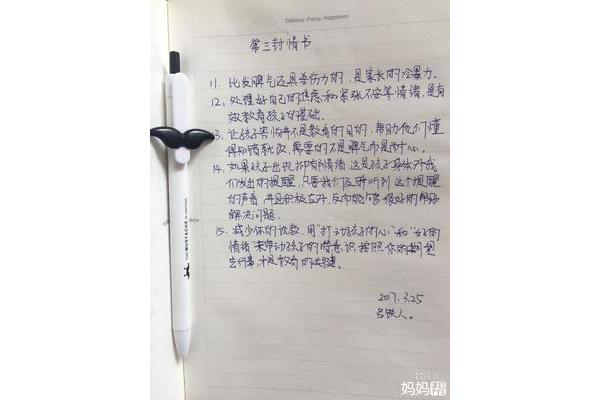 Delicacy. Fancy. Happiness
第三封情书
11. 比发脾气还具杀伤力的,是家长的冷暴力。
12. 处理好自己的焦虑和紧张不安等情绪,是有
效教育孩子的基础。
13. 让孩子害怕并不是教育的目的,帮助他们懂
得知错就改,需要的不是脾气而是耐心。
14. 如果孩子出现抑郁情绪,这是孩子身体对我
们发出的提醒,只要我们及时听到这个提醒
的声音,并且积极应对,反而能够很好的帮助
解决问题。
15. 减少你的说教,用“打动孩子的心”和“好的
情绪”来带动孩子的意识按照你的期望
去行事,才是教育的关键。
2017.3.25
THE MUSTACHE
妈妈帮